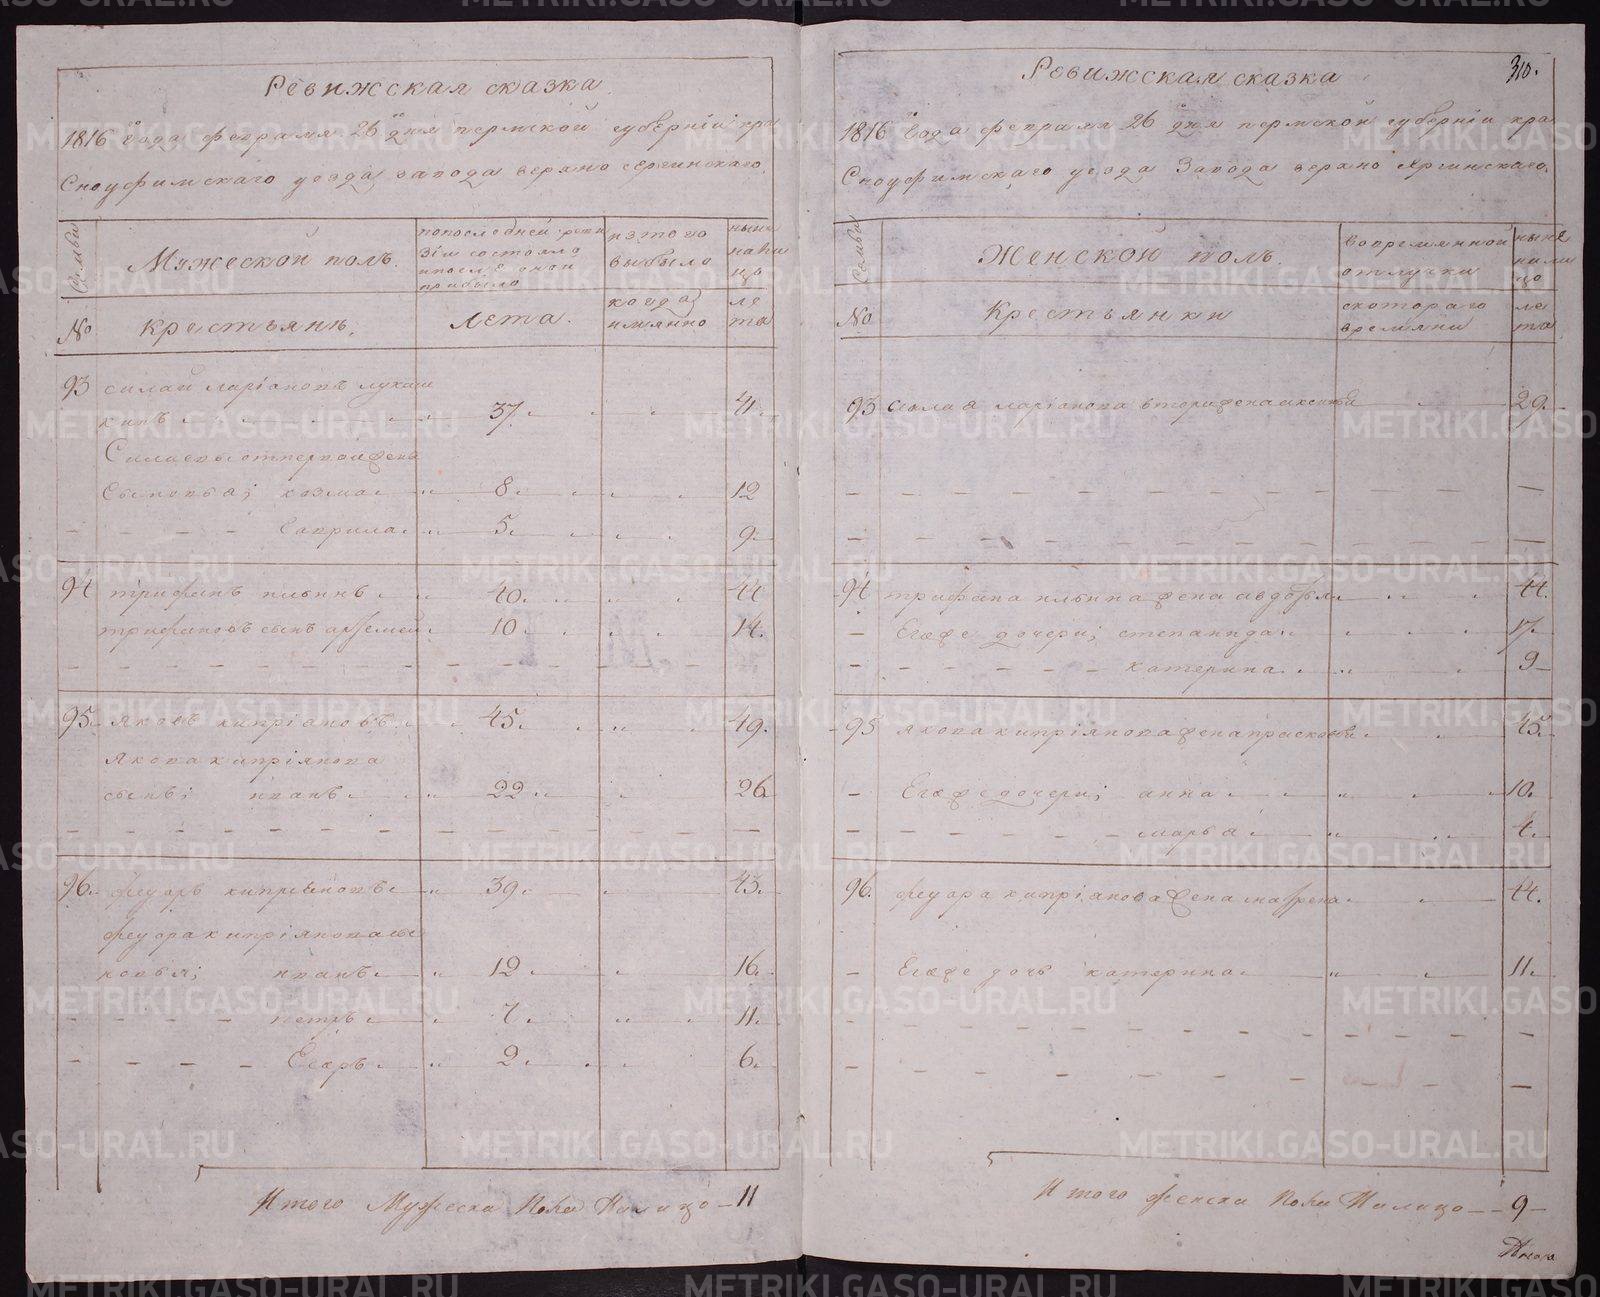 Ревижская сказка.
1816 го года февраля 26 го дня пермской губерніи кра
Сноуфимскаго уезда завода верхно сергинскаго.
Семьи
Мужеской полъ.
попоследней реви
зіи состояло
ипосле оной
прибыло
изтого
выбыло
ныне
нали
цо
№
крестьянъ.
лета.
когда
имянно
ле
та
93 силай ларіоновъ лукаш
кинъ 37. 41.
Силаевы отпервой жены
Сыновья; козма 8. 12
Гаврила 5. 9.
94 трифанъ ильинъ 40. 44
трифановъ сынъ арѳемей 10. 14.
95. яковъ кипріановъ 45. 49.
Якова кипріянова
сынъ; иванъ 22. 26
96. феодоръ кипріановъ 39. 43.
феодора кипріянова сы
новья; иванъ 12. 16.
петръ 7. 11.
Егоръ 2. 6.
Итого Мужеска Пола Налицо 11
310.
Ревижская сказка
1816 го года февраля 26 го дня пермской губерніи кра
Сноуфимскаго уезда Завода верхно сергинскаго.
Семьи
Женской полъ.
вовремянной
отлучки
ныне
нали
цо
№
Крестьянки
скотораго
времяни
ле
та
93 силая ларіонова втора жена аксинья 29.
94 трифана ильина жена авдотья 44.
Егоже дочери; степанида 17.
катерина 9
95 якова кипріянова жена прасковья 45.
Егоже дочери; анна 10.
марья 4.
96. феодора кипріанова жена маврена 44.
Егоже дочь катерина 11.
Итого женска Пола Налицо 9